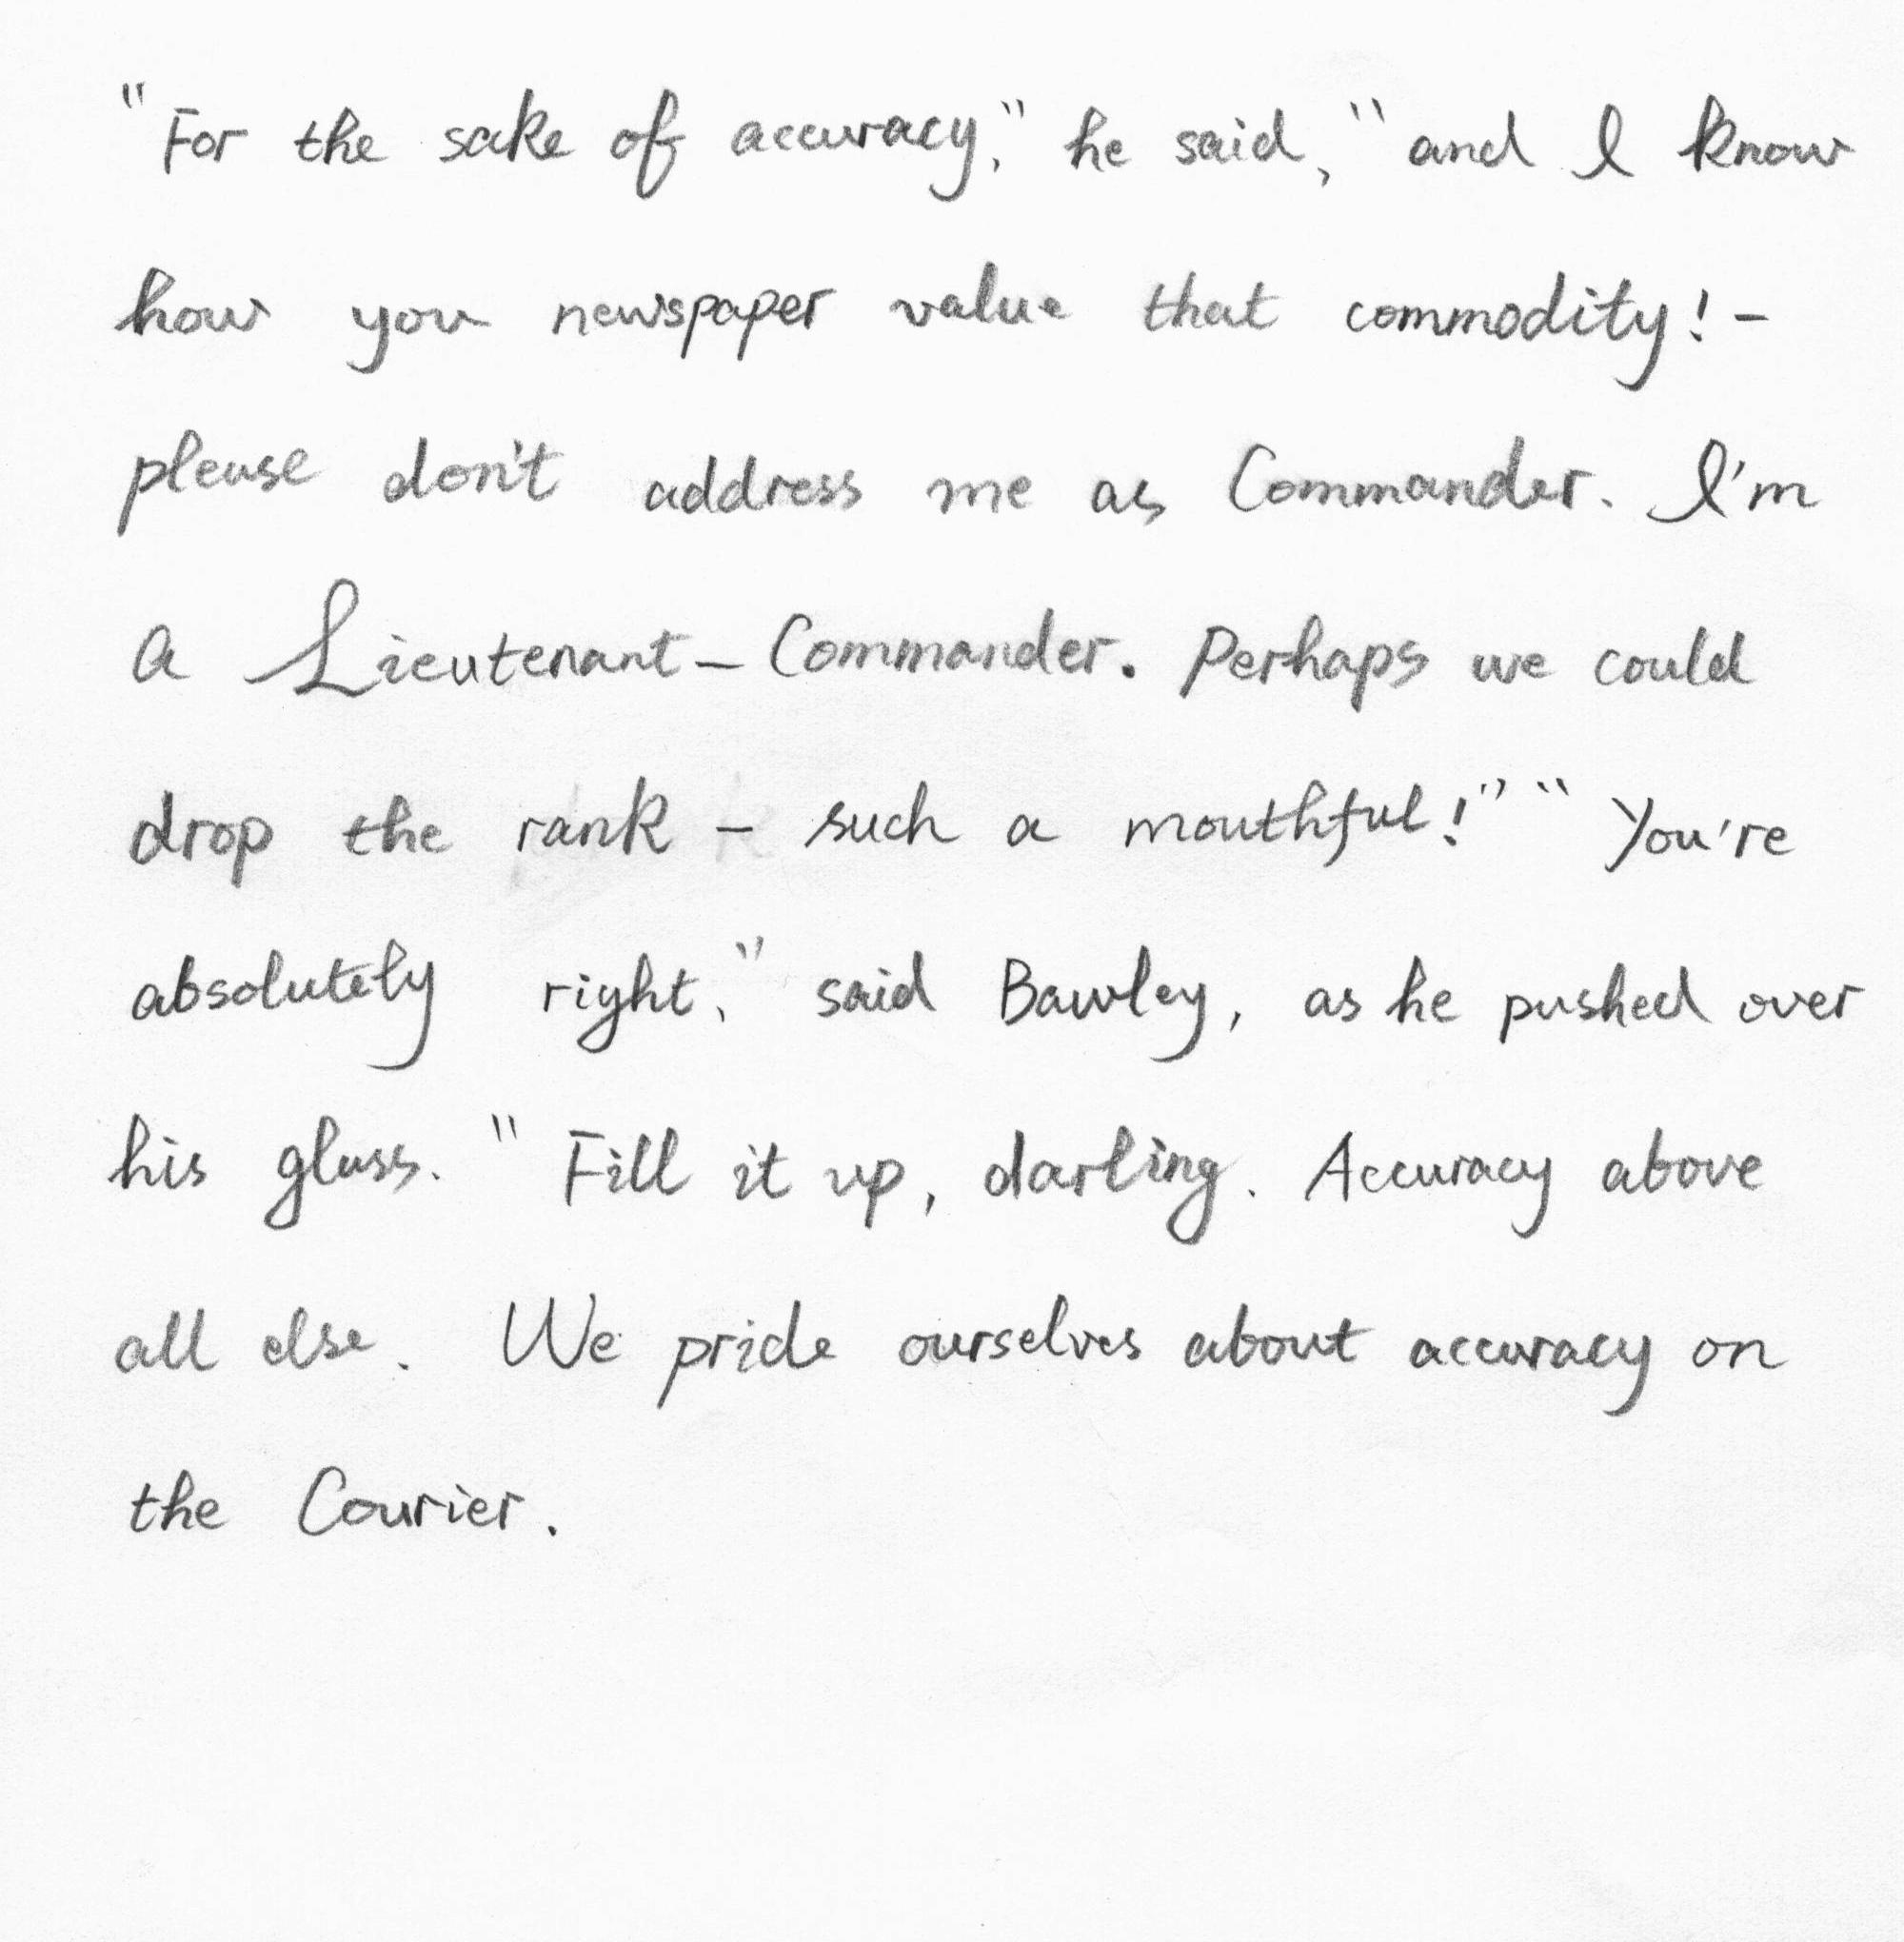 "For the sake of accuracy," he said, "and I know
how you newspaper value that commodity! -
please don't address me as Commander. I'm
a Lieutenant - Commander. Perhaps we could
drop the rank - such a mouthful!" "You're
absolutely right," said Bawley, as he pushed over
his glass. "Fill it up, darling. Accuracy above
all else. We pride ourselves about accuracy on
the Courier.